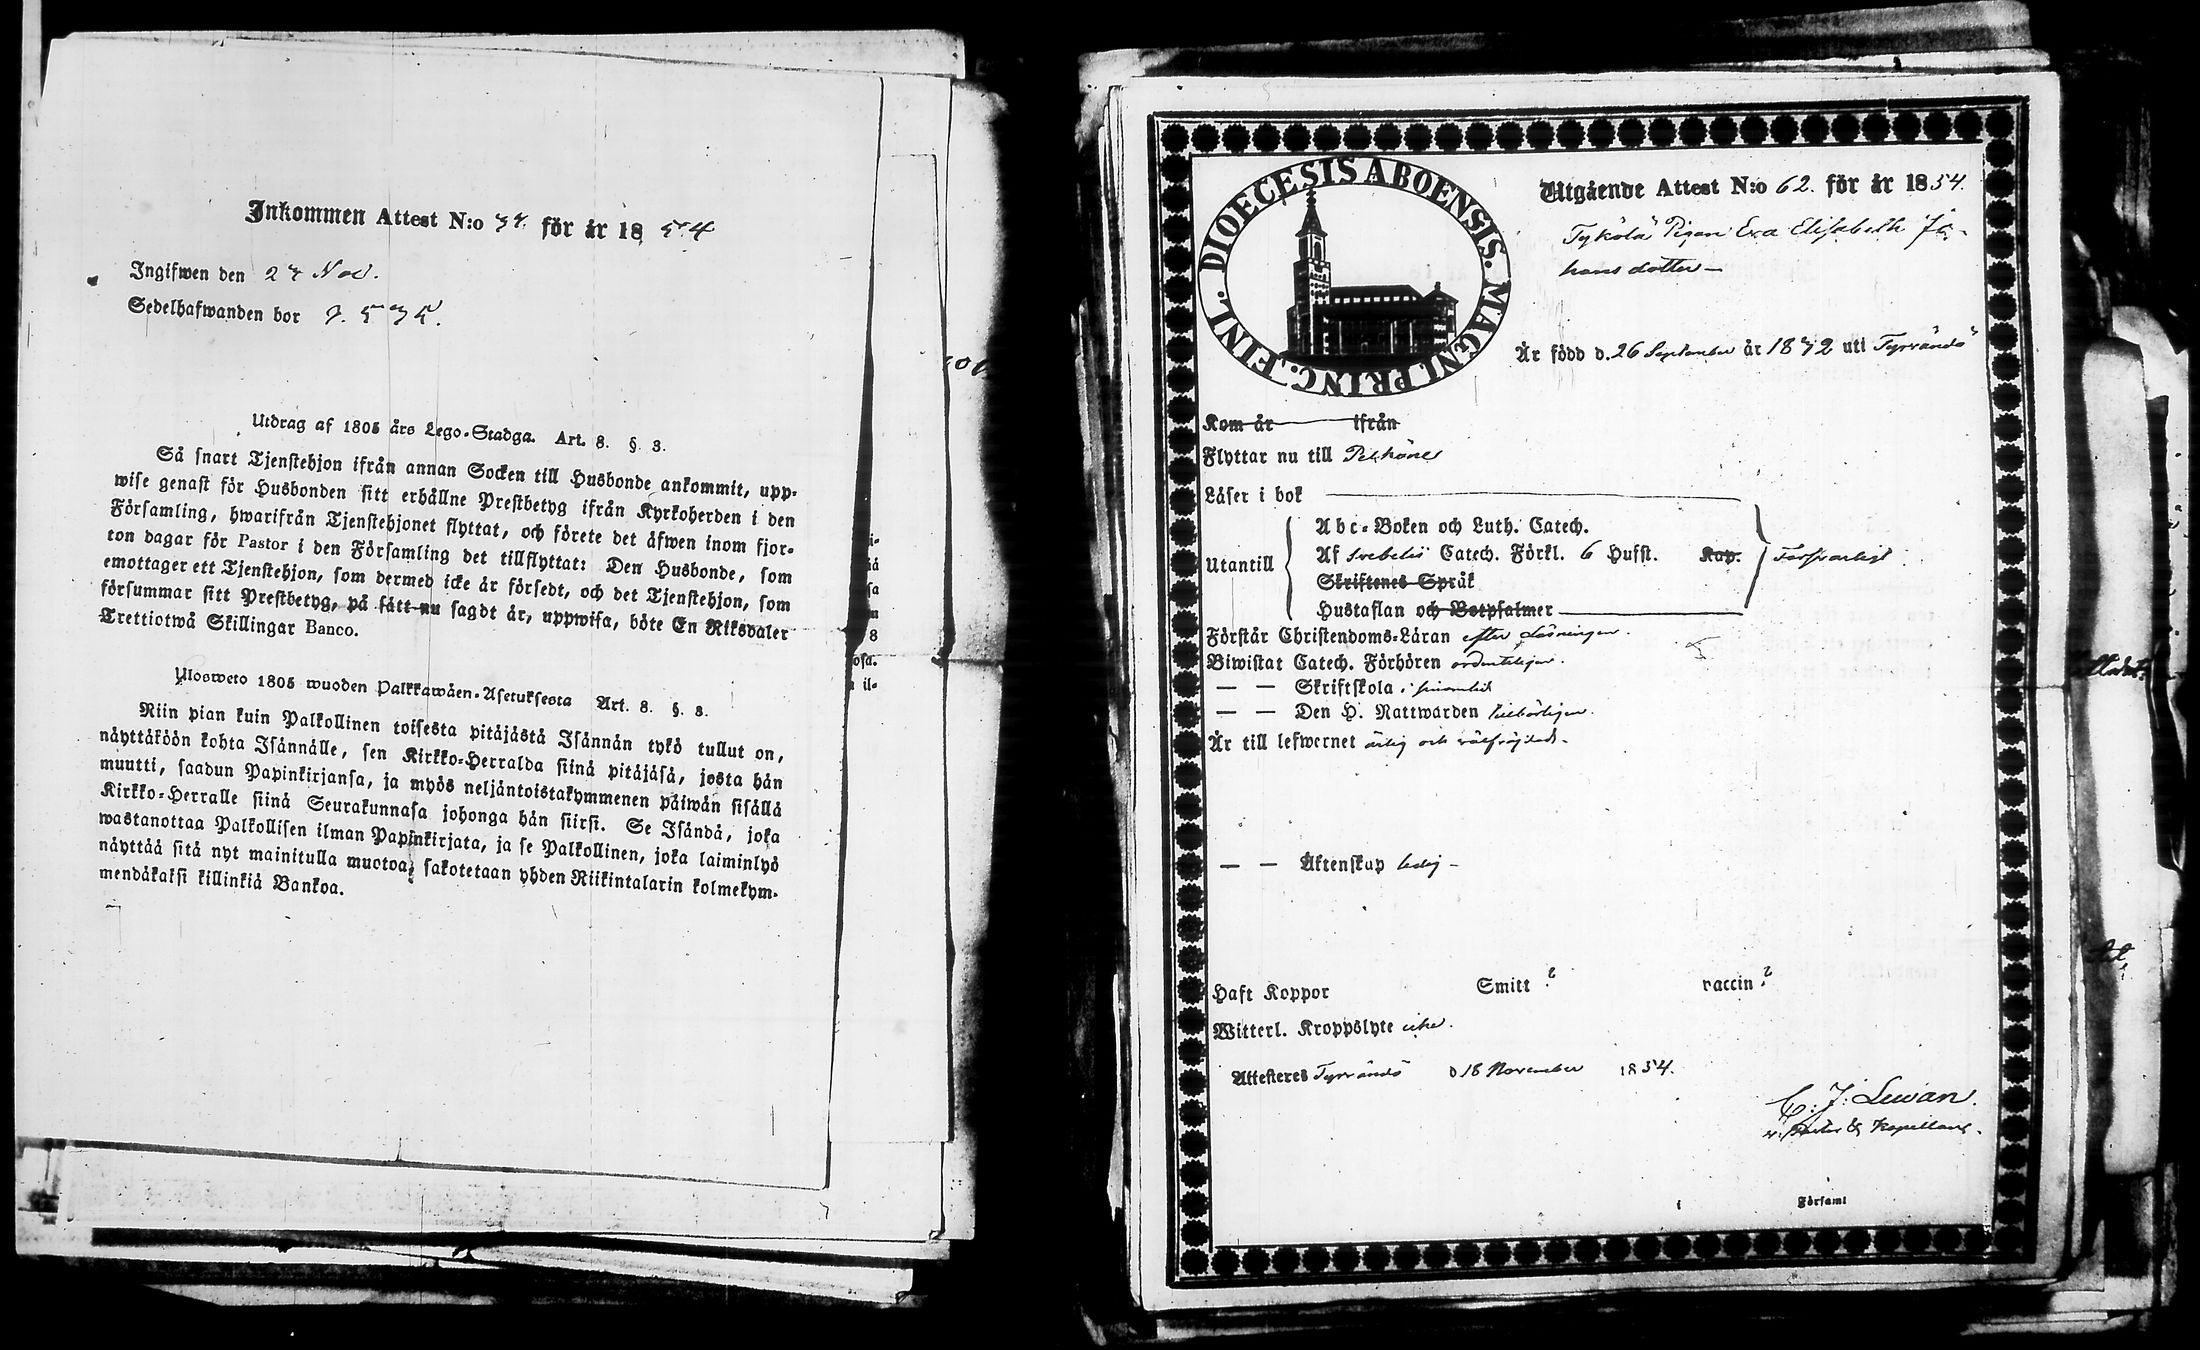 Inkommen Attest N:o för år 1854
Ingifwen den 27 Nov.
Sedelhafwanden bor
Utdrag af 1805 års Lego-Stadga. Art. 8. §. 3.
Så snart Tjenstehjon ifrån annan Socken till Husbonde ankommit, upp-
wise genast för Husbonden sitt erhållne Prestbetyg ifrån Kyrkoherden i den
Församling, hwarifrån Tjenstehjonet flyttat, och förete det äfwen inom fjor-
ton dagar för Pastor i den Församling det tillflyttat: Den Husbonde, som
emottager ett Tjenstehjon, som dermed icke är försedt, och det Tjenstehjon, som
försummar sitt Prestbetyg, på sätt nu sagdt är, uppwisa, böte En Riksdaler
Trettiotwå Skillingar Banco.
Ulosweto 1805 wuoden Palkkawäen-Asetuksesta Art. 8. §. 3.
Niin pian kuin Palkollinen toisesta pitäjästä Isännän tykö tullut on,
näyttäköön kohta Isännälle, sen Kirkko-Herralda siinä pitäjäsä, josta hän
muutti, saadun Papinkirjansa, ja myös neljäntoistakymmenen päiwän sisällä
Kirkko-Herralle siinä Seurakunnasa johonga hän siirsi. Se Isändä, joka
wastanottaa Palkollisen ilman Papinkirjata, ja se Palkollinen, joka laiminlyö
näyttää sitä nyt mainitulla muotoa, sakotetaan yhden Riikintalarin kolmekym-
mendäkaksi killinkiä Bankoa.
DIOECESIS ABOENSIS. MAGNI PRINC. FINL.
Utgående Attest N:o 62. för år 1854.
Tykölä Pigan Eva Elisabeth Jo-
hans dotter
Är född d. 26 September år 1832 uti Tyrvändö
Kom år ifrån
Flyttar nu till Pelkäne
Läser i bok
Abc-Boken och Luth. Catech.
Utantill Af Svebelii Catech. Förkl. 6 Hufst. Kap. Försvarligt
Skriftenes Språk
Hustaflan och Botpsalmer
Förstår Christendoms-Läran efter läsningen.
Biwistat Catech. Förhören ordenteligen.
— — Skriftskola
— — Den H. Nattwarden tilbörligen.
Är till lefwernet ärlig och välfräjdad.
— — Äktenskap ledig
Haft Koppor Smitt ? vaccin ?
Witterl. Kroppslyte icke.
Attesteras Tyrvändö d 18 November 1854.
C: J: Lewan.
v. Pastor & Kapellans.
i Församl